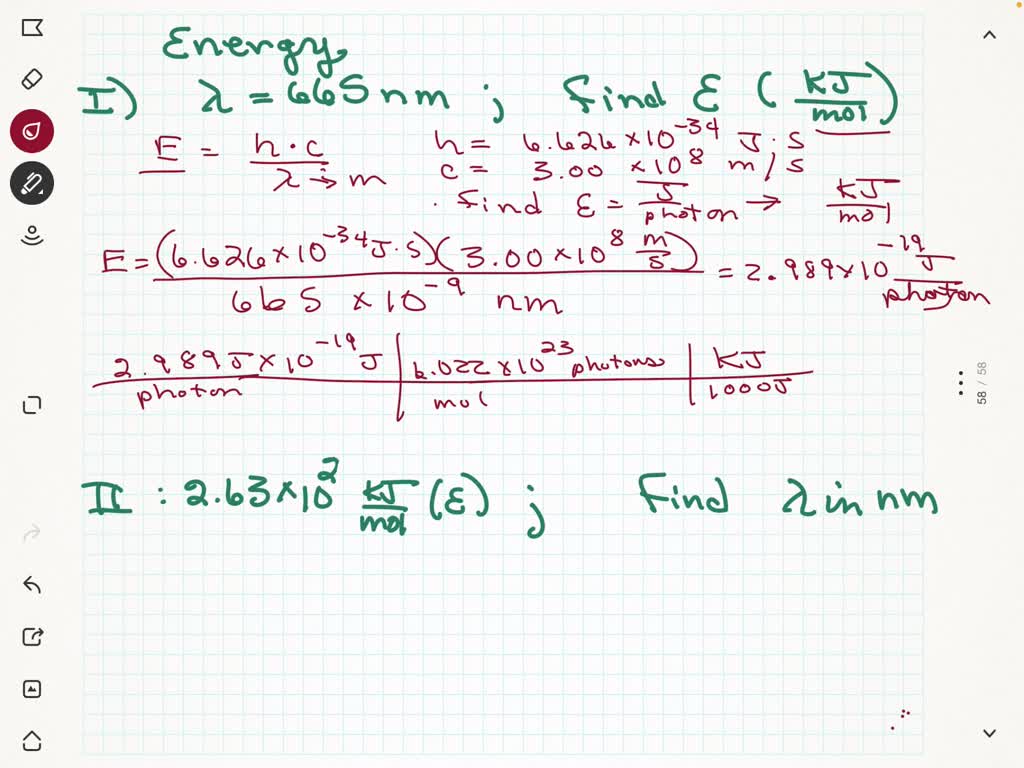 Energy
I) λ = 665 nm ; find E (KJ/mol)
E = h·c / λ → m
h = 6.626 × 10^-34 J·S
c = 3.00 × 10^8 m/s
. find E = J/photon → KJ/mol
E = (6.626 × 10^-34 J·S)(3.00 × 10^8 m/s) / 665 × 10^-9 nm = 2.989 × 10^-19 J/photon
2.989 J × 10^-19 J / photon | 6.022 × 10^23 photons / mol | KJ / 1000J
II : 2.63 × 10^2 KJ/mol (E) ; Find λ in nm
58 / 58